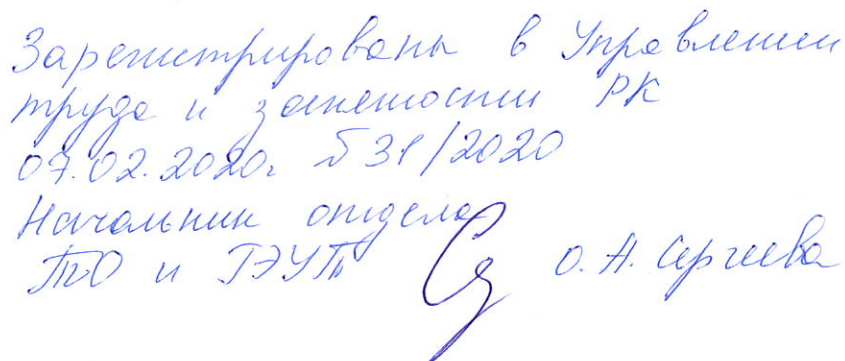 Зарегистрированы в Управлении
труда и занятости РК
07.02.2020г. №31/2020
Начальник отдела
ТО и ГЭУТ О.А. Сергеева